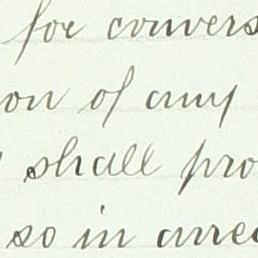 for convers
on of any
shall pro
so in arrea